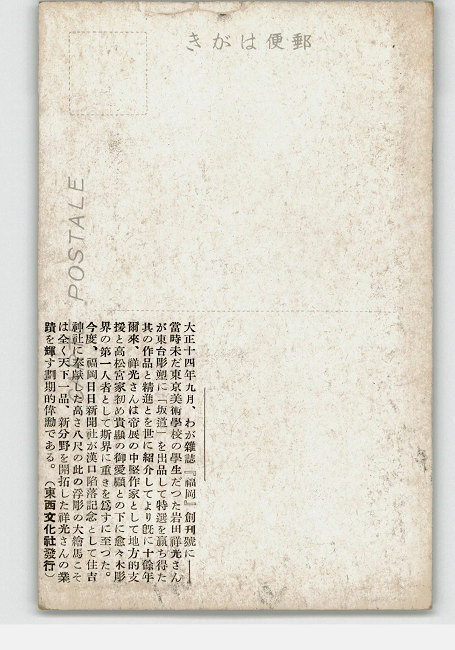 きがは便郵
POSTALE
大正十四年九月、わが雜誌『福岡』創刊號に──
當時未だ東京美術學校の學生だつた岩田祥光さん
が東台彫塑に「坂道」を出品して特選を贏ち得た
其の作品と精進とを世に紹介してより旣に十餘年
爾來、祥光さんは帝展の中堅作家として地方的支
援と高松宮家初め貴顯の御愛顧との下に愈々木彫
界の第一人者として斯界に重きを爲すに至つた。
今度、福岡日日新聞社が漢口陷落記念として住吉
神社に奉獻した高さ八尺の此の浮彫の大繪馬こそ
は全く天下一品、新分野を開拓した祥光さんの業
蹟を輝す劃期的偉勳である。(東西文化社發行)